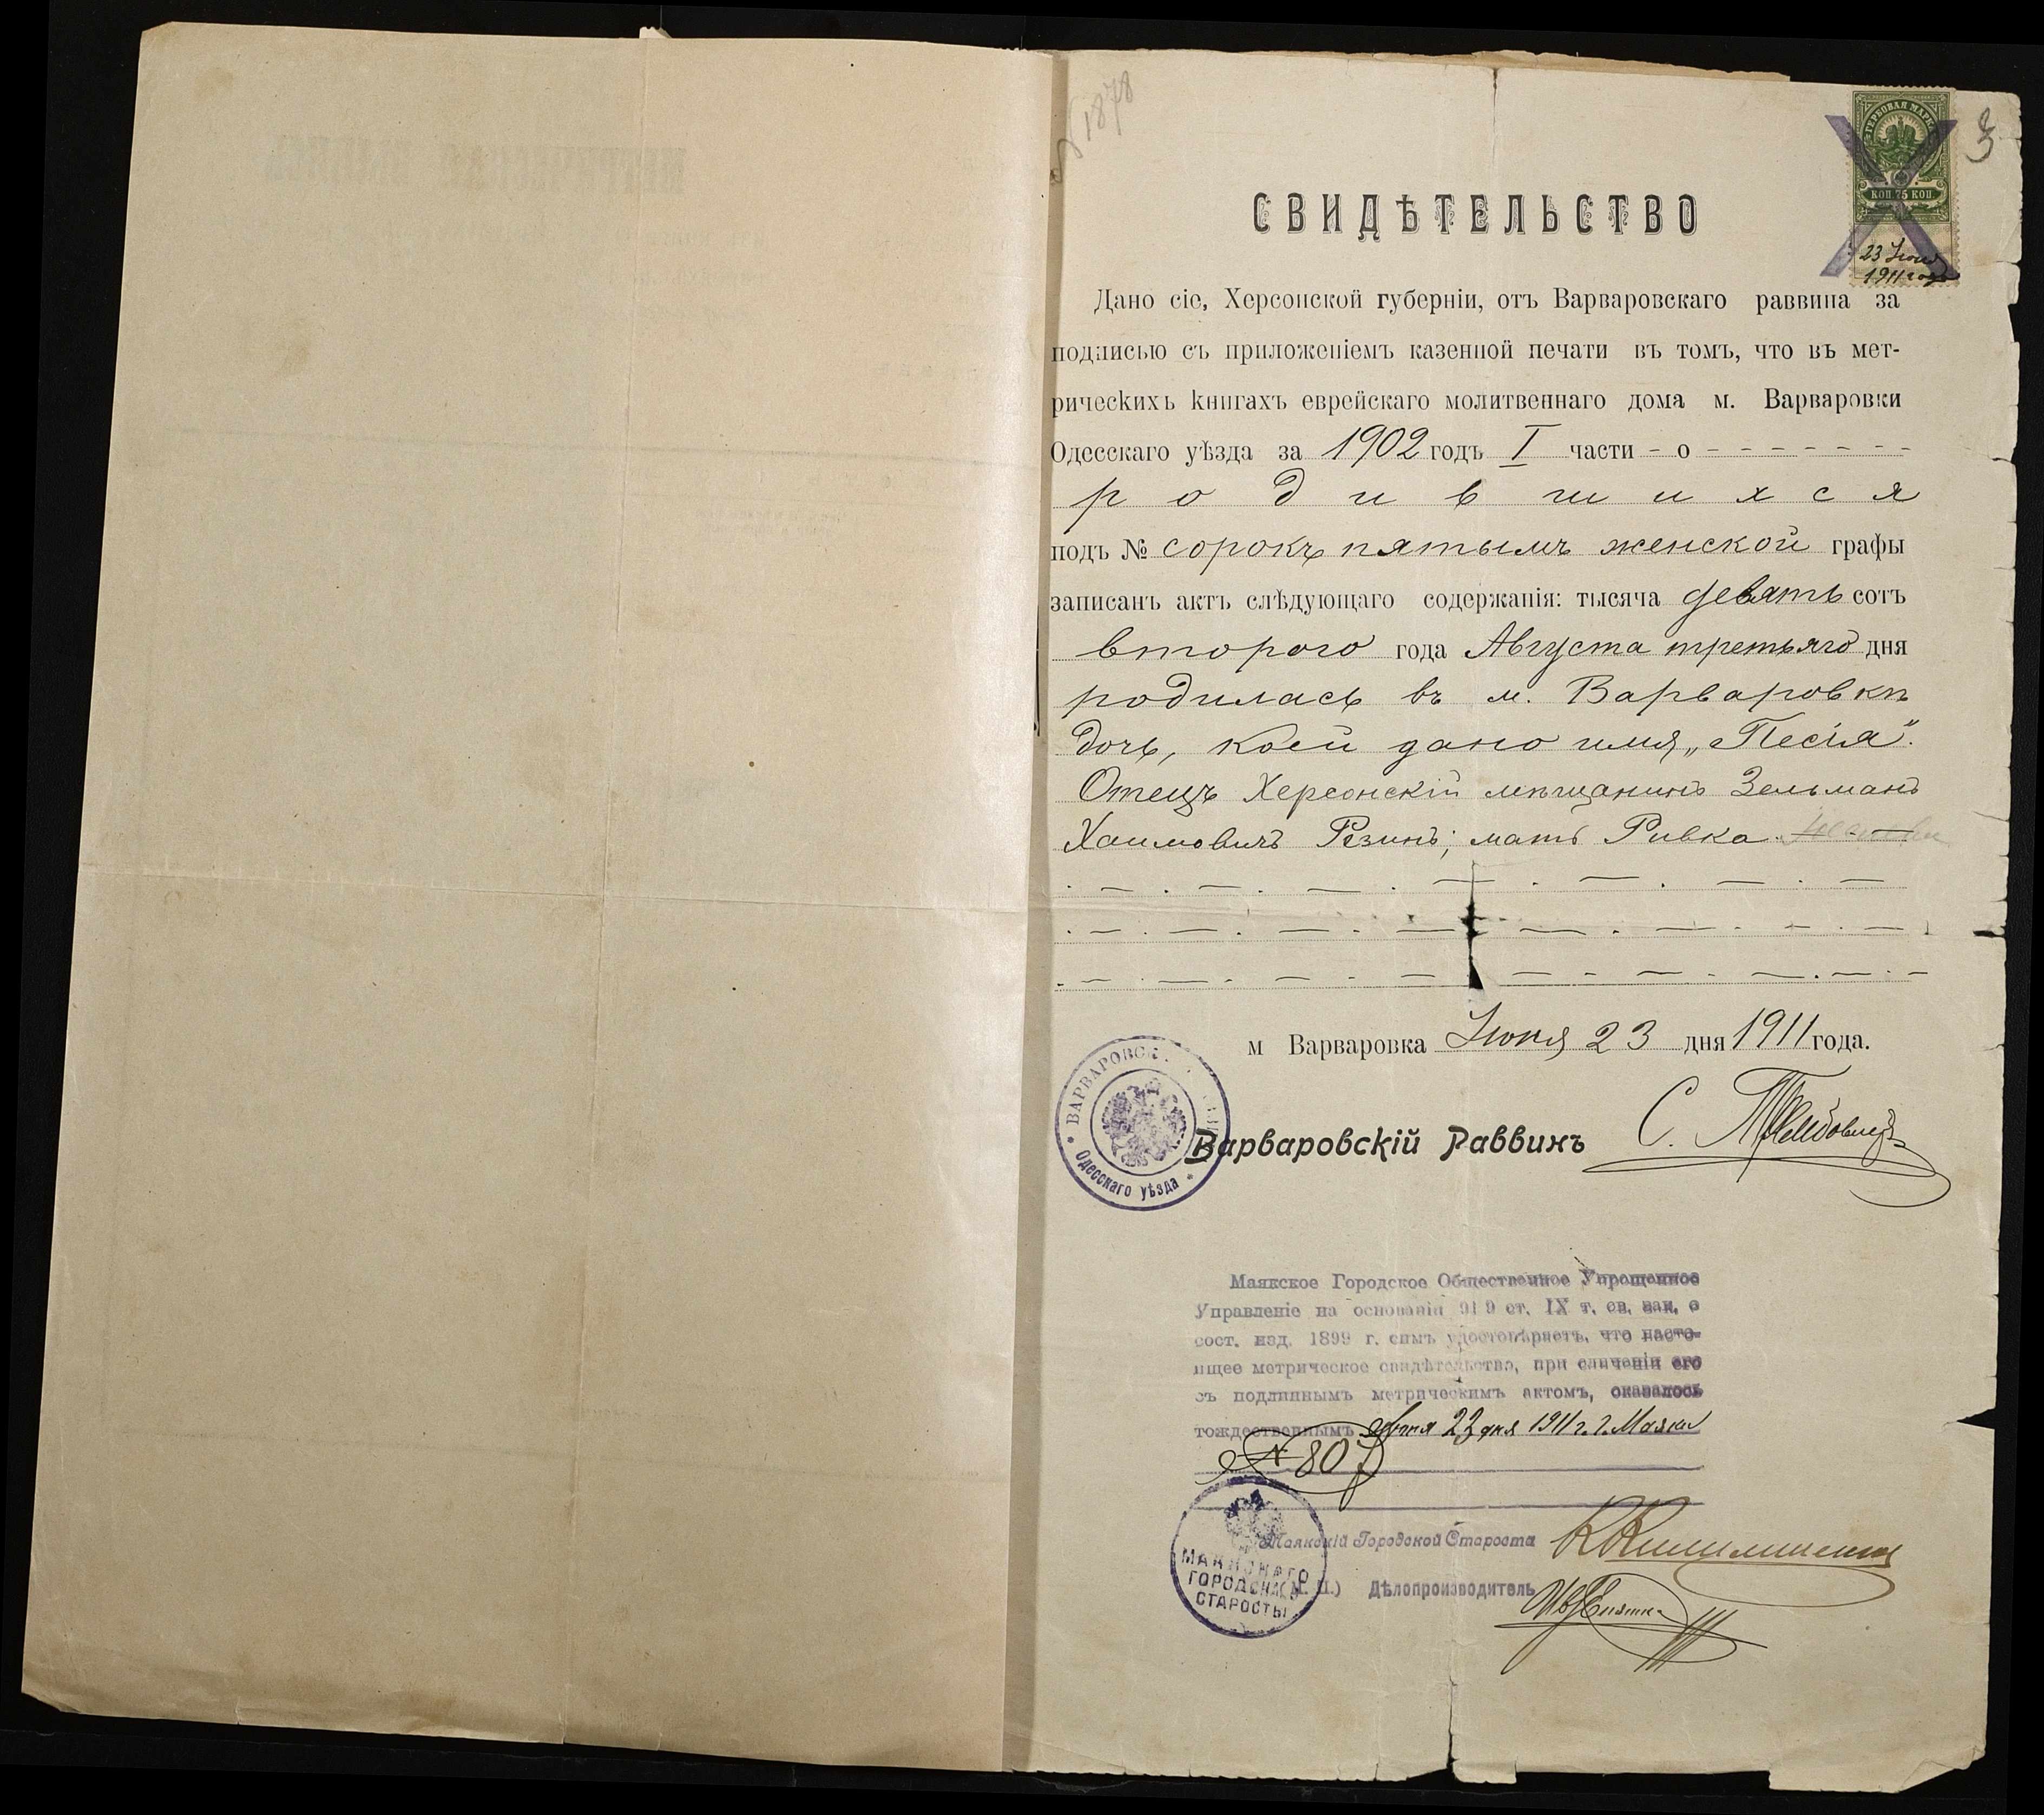 № 1878
3
ГЕРБОВАЯ МАРКА
КОП 75 КОП
23 Іюня
1911 года
СВИДѢТЕЛЬСТВО
Дано сіе, Херсонской губерніи, отъ Варваровскаго раввина за
подписью съ приложеніемъ казенной печати въ томъ, что въ мет-
рическихъ книгахъ еврейскаго молитвеннаго дома м. Варваровки
Одесскаго уѣзда за 1902 годъ I части - о - - - - - - - -
р о д и в ш и х с я
подъ № сорокъ пятымъ женской графы
записанъ актъ слѣдующаго содержанія: тысяча девять сотъ
второго года Августа третьяго дня
родилась въ м. Варваровкѣ
дочь, коей дано имя „Песія".
Отецъ Херсонскій мѣщанинъ Зельманъ
Хаимовичъ Резинъ; мать Ривка
м Варваровка Іюня 23 дня 1911 года.
ВАРВАРОВСК
Одесскаго уѣзда
Варваровскій Раввинъ С.
Маякское Городское Общественное Упрощенное
Управленіе на основаніи 919 ст. IX т. св. зак. о
сост. изд. 1899 г. симъ удостовѣряетъ, что насто-
ящее метрическое свидѣтельство, при сличеніи его
съ подлиннымъ метрическимъ актомъ, оказалось
тождественнымъ Іюня 23 дня 1911 г. г. Маяки
№ 807
Маякскій Городской Староста
МАЯКСКАГО
ГОРОДСКАГО
СТАРОСТЫ
(М. П.) Дѣлопроизводитель